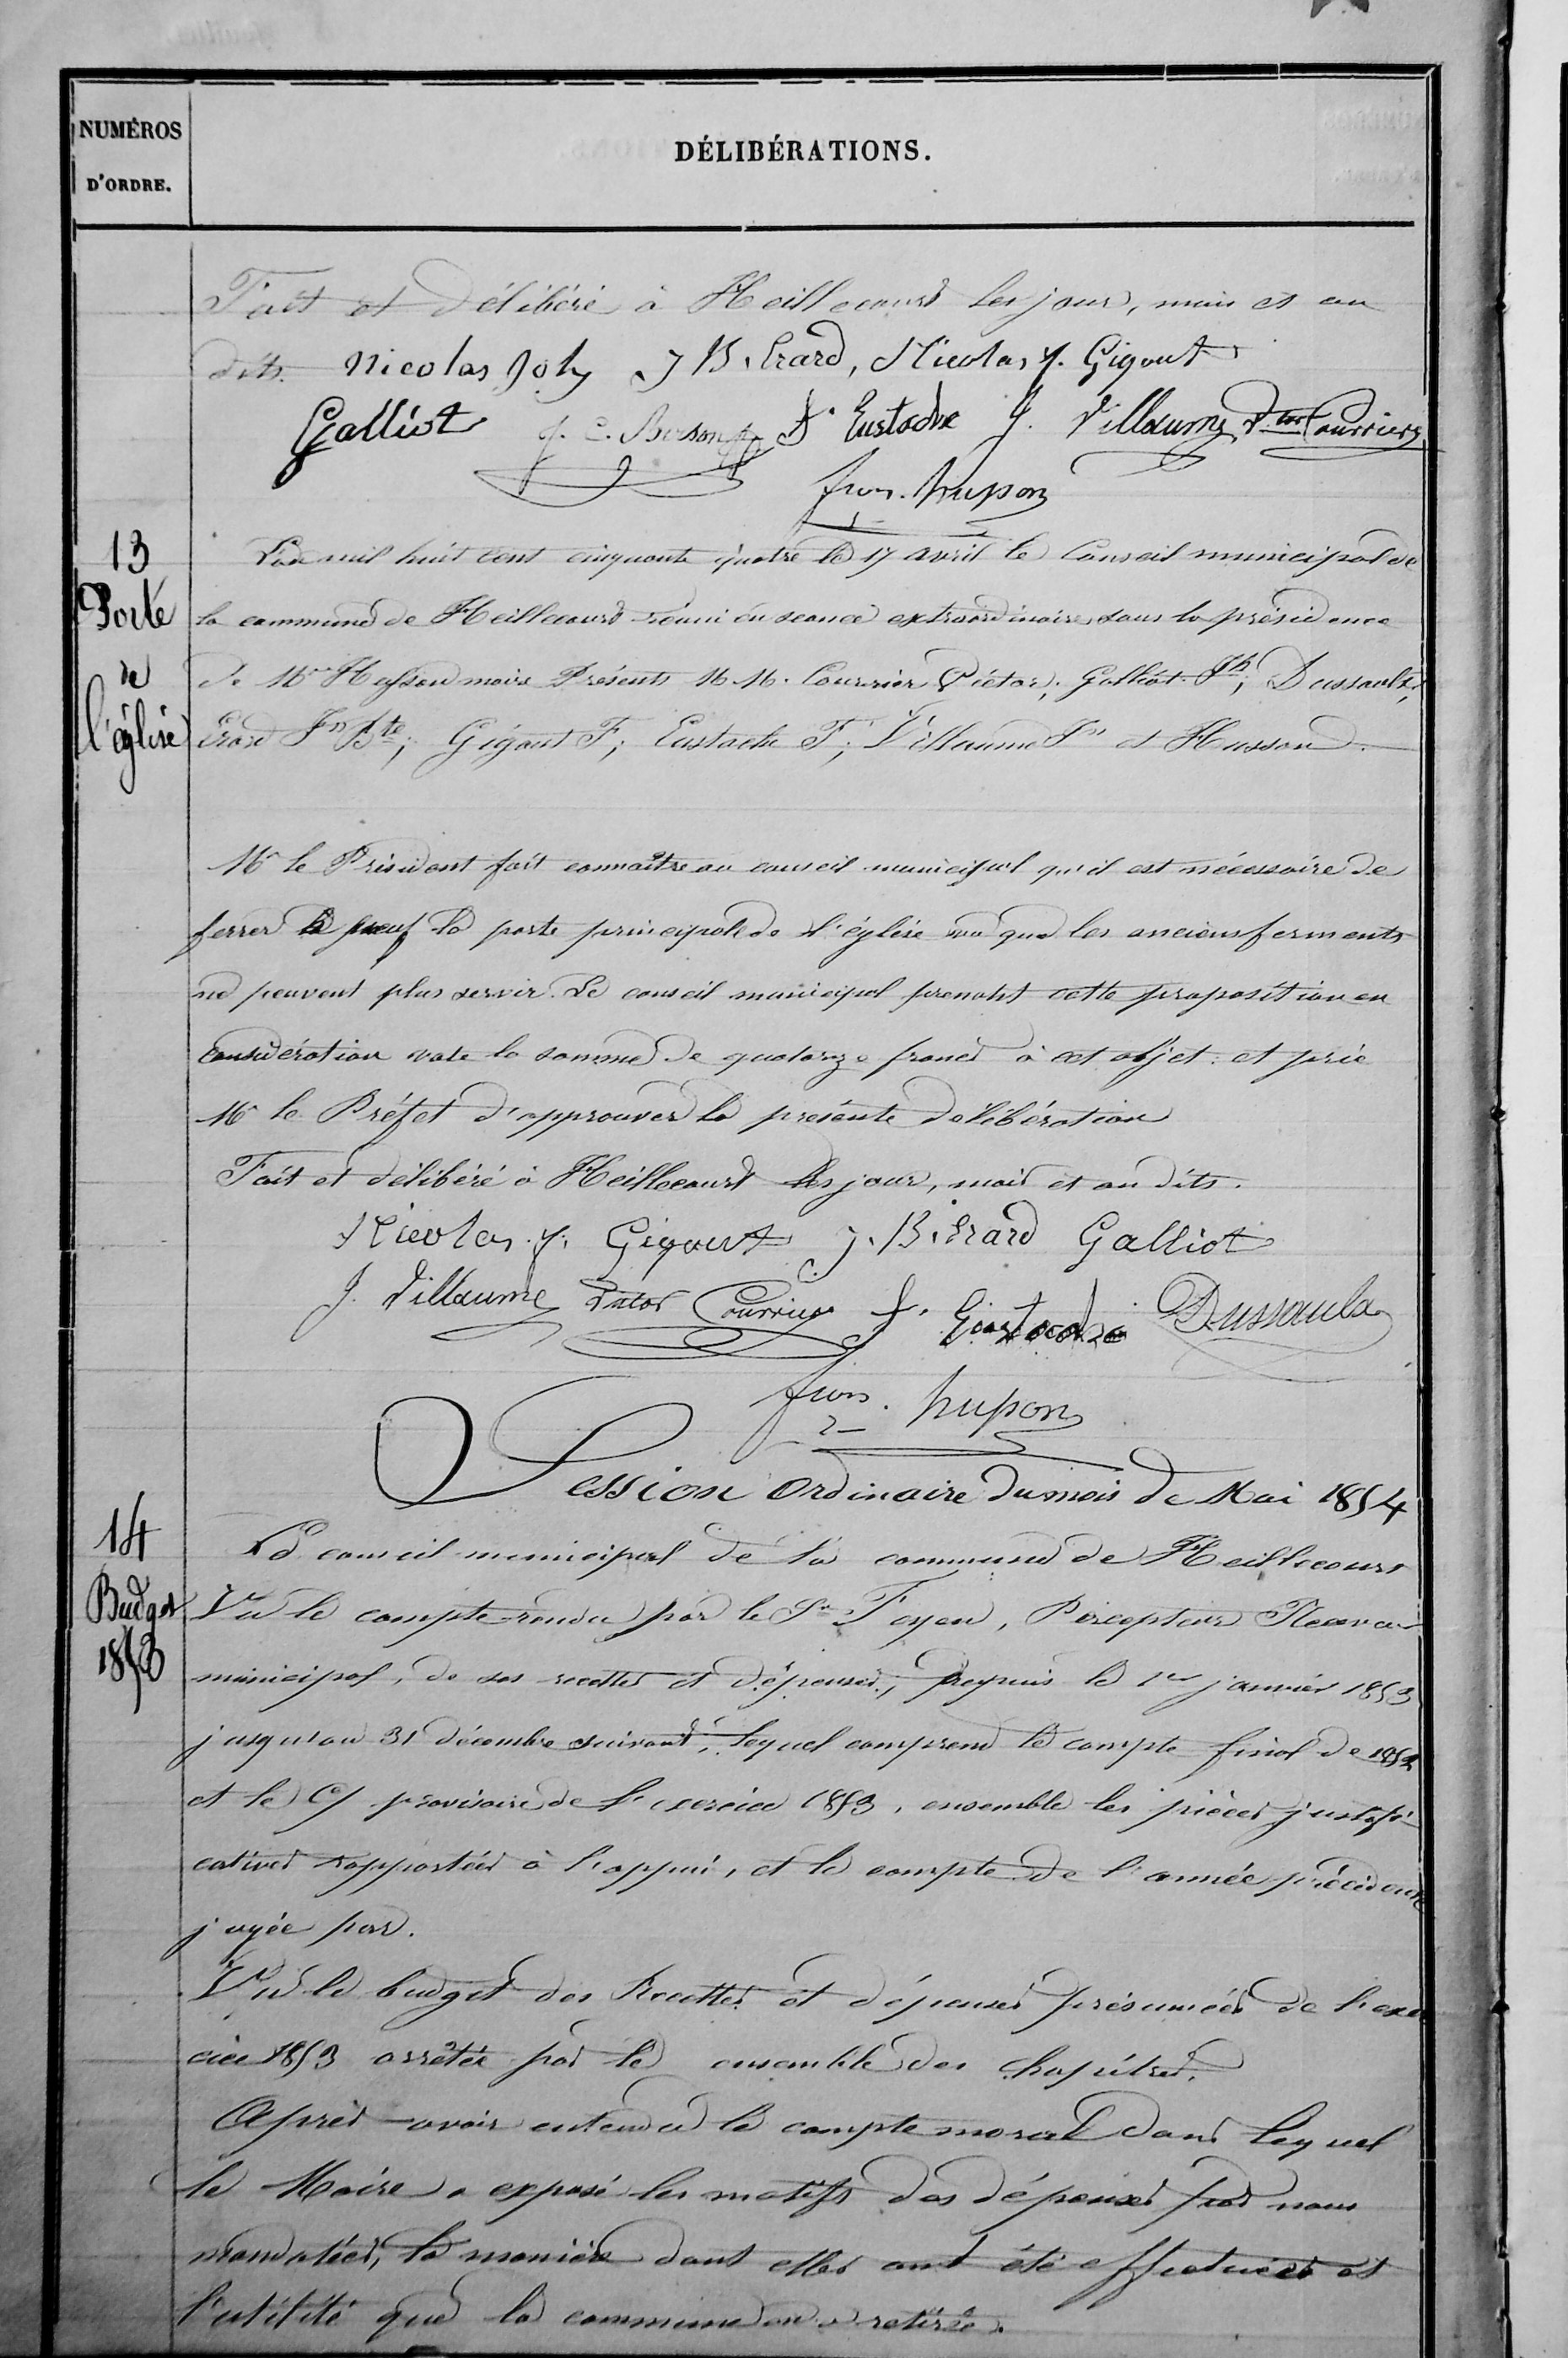 NUMÉROS
D'ORDRE.
DÉLIBÉRATIONS.
Fait et délibéré à Heillecourt les jour, mois et an
dits. Nicolas Joly J B. Erard, Nicolas f. Gigout
Galliot J. C. Bresson f. Eustache J. Villaume Vtor Courrier
fcois. husson
13
Porte
de
l'église
L'an mil huit cent cinquante quatre le 17 avril le Conseil municipal de
la commune de Heillecourt réuni en séance extraordinaire, sous la présidence
de Mr Husson maire Présents M.M. Courrier Victor; Galliot Jh; Dussaulx;
Erard Jn Bte; Gigout F; Eustache F; Villaume Jn et Husson.
Mr le Président fait connaître au conseil municipal qu'il est nécessaire de
ferrer à neuf la porte principale de l'église vu que les anciens ferments
ne peuvent plus servir. Le conseil municipal prenant cette proposition en
considération vote la somme de quatorze francs à cet objet. et prie
Mr le Préfet d'approuver la présente délibération
Fait et délibéré à Heillecourt les jour, mois et an dits.
Nicolas. f. Gigout J. B. Erard Galliot
J. Villaume Victor Courrier f. Eustache Dussaulx
fcois. husson
Session Ordinaire du mois de Mai 1854
14
Budget
1853
Le conseil municipal de la commune de Heillecourt
Vu le compte rendu par le Sr Toyen, Percepteur Receveur
municipal, de ses recettes et dépenses, depuis le 1er janvier 1853
jusqu'au 31 décembre suivant, lequel comprend le compte final de 1852
et le Cte provisoire de l'exercice 1853, ensemble les pièces justifi-
catives rapportées à l'appui, et le compte de l'année précédente
jugée par.
Vu le budget des Recettes et dépenses présumées de l'exer
cice 1853 arrêtée par le ensemble des chapitres.
Après avoir entendu le compte moral dans lequel
le Maire a exposé les motifs des dépenses par nous
mandatées, la manière dont elles ont été effectuées et
l'utilité que la commune en a retirée.